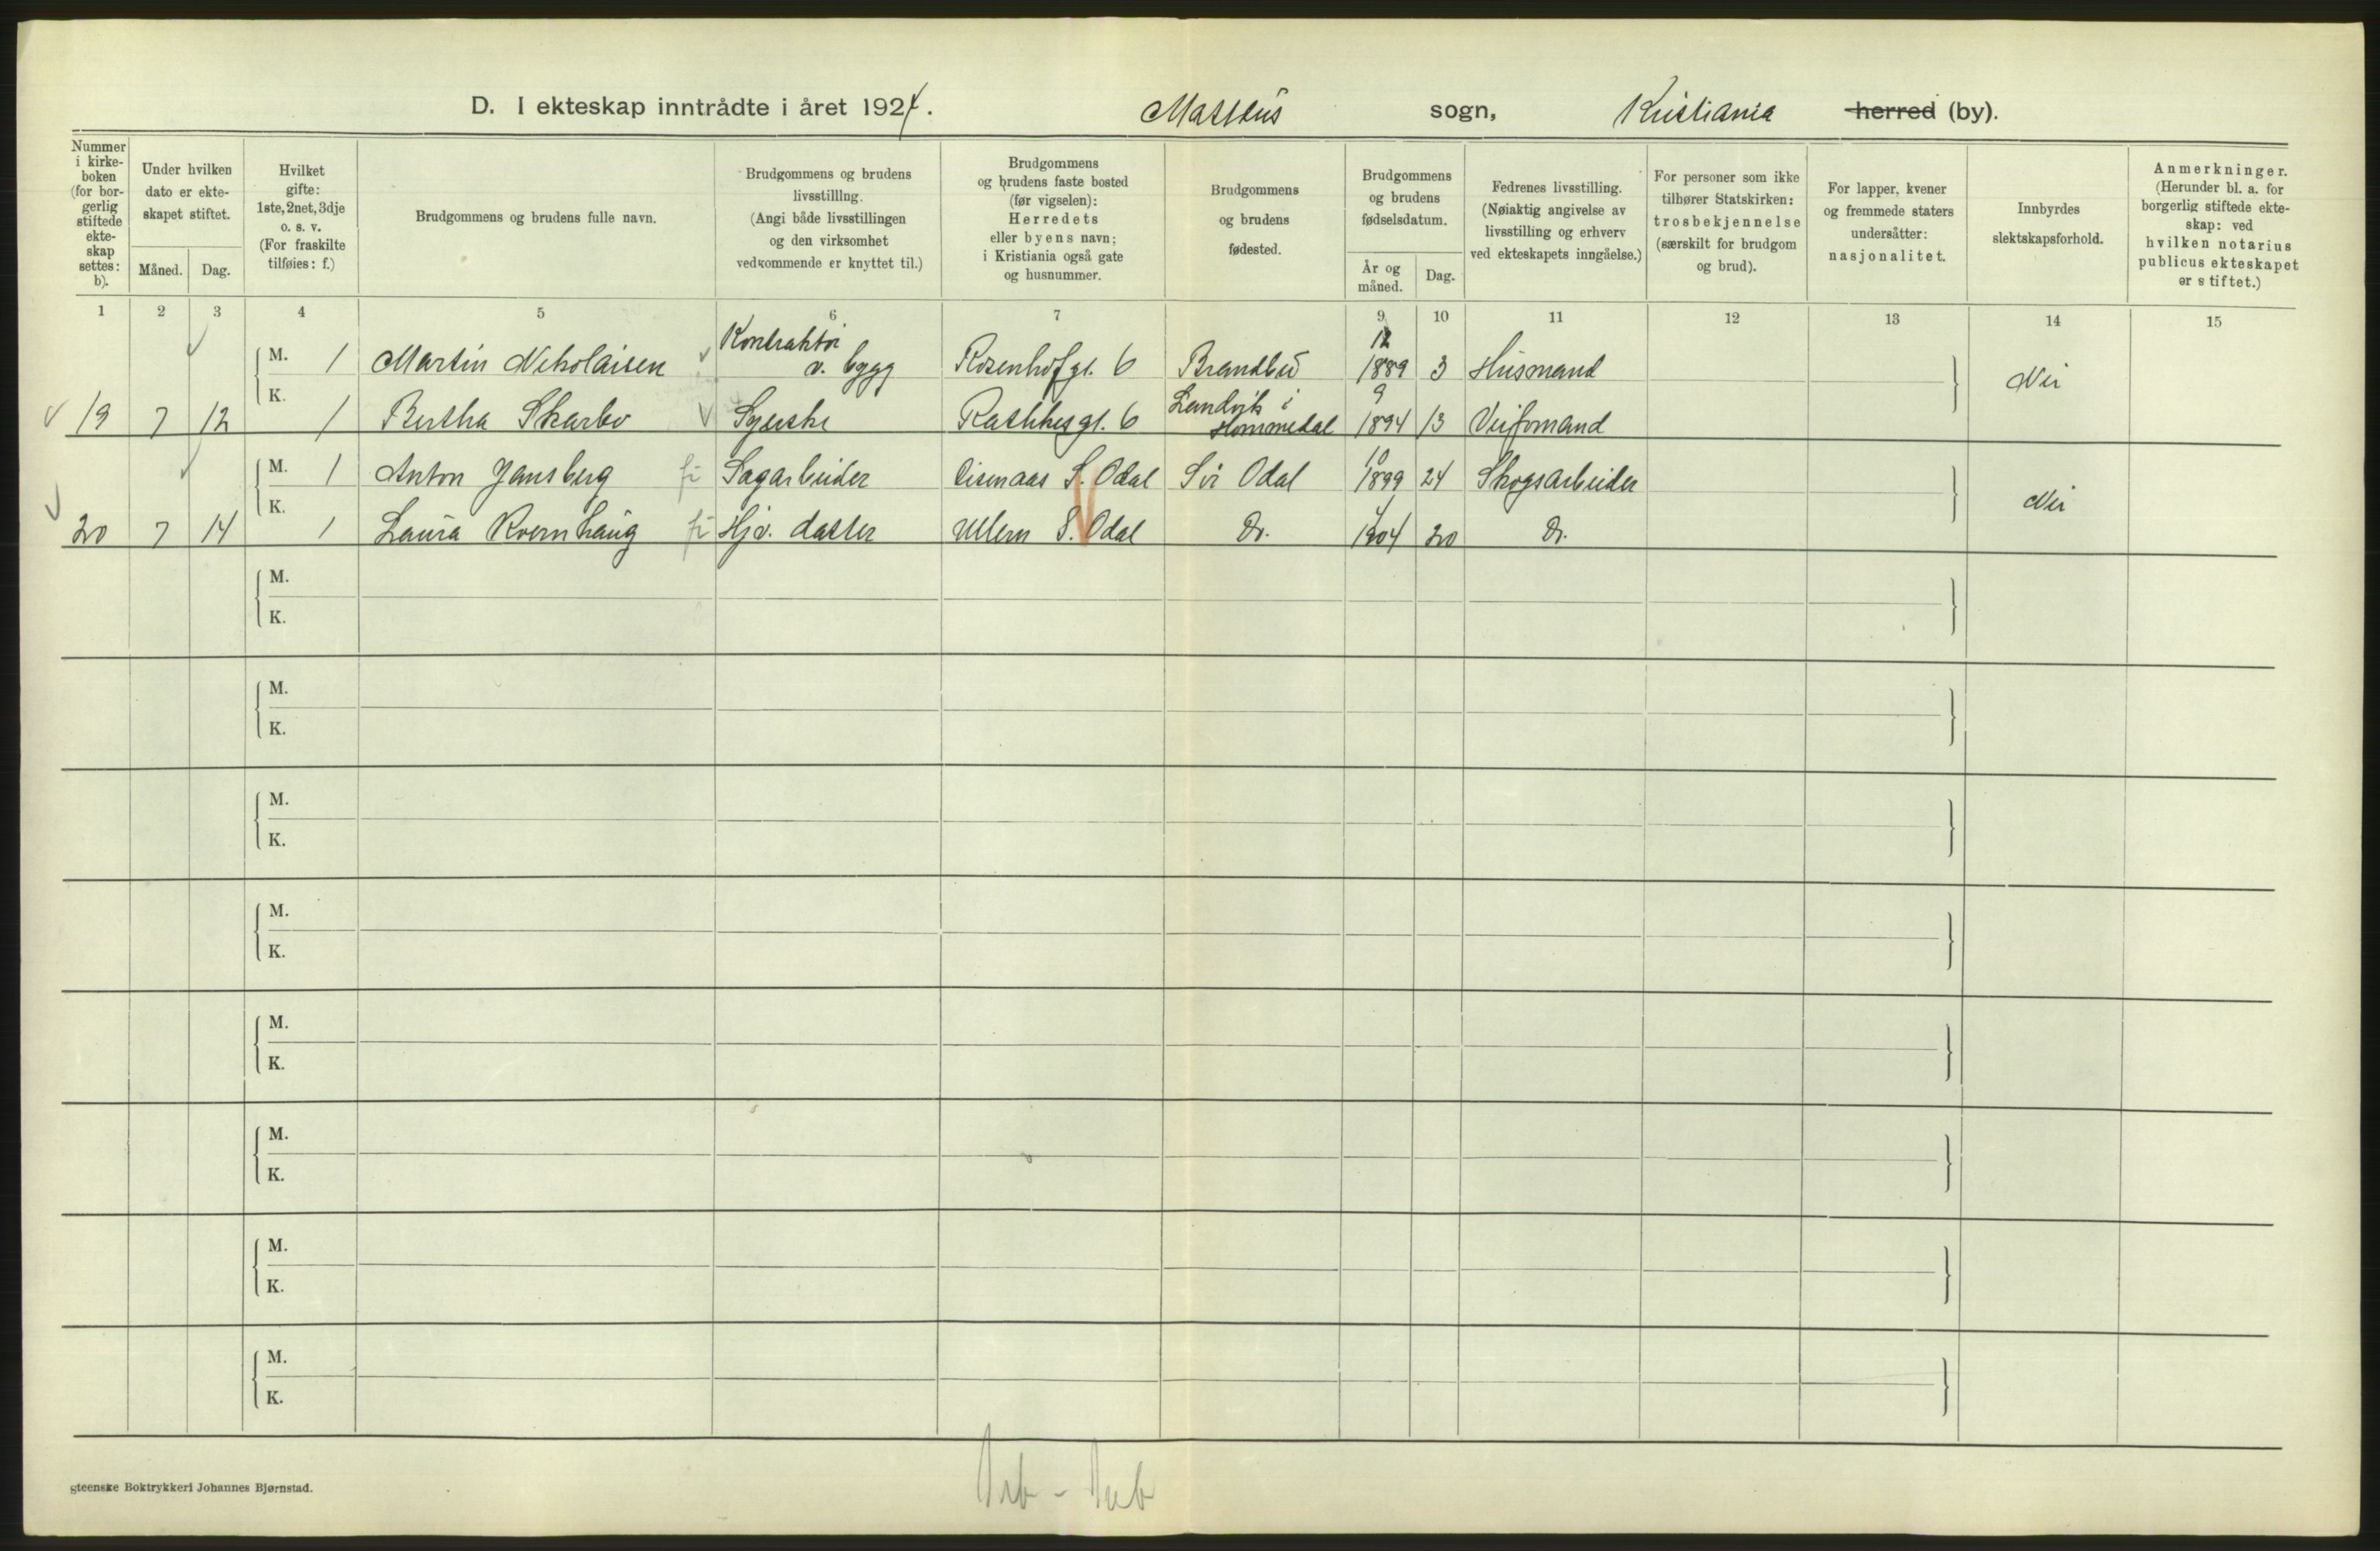 D. I ekteskap inntrådte i året 1924. Matteus sogn, Kristiania herred (by).
Nummer i kirkeboken (for borgerlig stiftede ekteskap settes: b).
Under hvilken dato er ekteskapet stiftet.
Måned. Dag.
Hvilket gifte: 1ste, 2net, 3dje o. s. v. (For fraskilte tilføies: f.)
Brudgommens og brudens fulle navn.
Brudgommens og brudens livsstilling. (Angi både livsstillingen og den virksomhet vedkommende er knyttet til.)
Brudgommens og brudens faste bosted (før vigselen): Herredets eller byens navn; i Kristiania også gate og husnummer.
Brudgommens og brudens fødested.
Brudgommens og brudens fødselsdatum.
År og måned. Dag.
Fedrenes livsstilling. (Nøiaktig angivelse av livsstilling og erhverv ved ekteskapets inngåelse.)
For personer som ikke tilhører Statskirken: trosbekjennelse (særskilt for brudgom og brud).
For lapper, kvener og fremmede staters undersåtter: nasjonalitet.
Innbyrdes slektskapsforhold.
Anmerkninger. (Herunder bl. a. for borgerlig stiftede ekteskap: ved hvilken notarius publicus ekteskapet er stiftet.)
1 2 3 4 5 6 7 9 10 11 12 13 14 15
M. 1 Martin Nikolaisen Kontraktør v. bygg Rosenhofgt. 6 Brandbu 12 1889 3 Husmand Nei
19 7 12 K. 1 Bertha Skarbo Syerske Rathkesgt. 6 Landvik i Hommedal 9 1894 13 Veiformand
M. 1 Anton Jansberg Sagarbeider S. Odal Sør Odal 10 1899 24 Skogsarbeider Nei
20 7 14 K. 1 Laura Kvernhaug Hjv. datter Ullern S. Odal Do. 4 1904 20 Do.
M.
K.
M.
K.
M.
K.
M.
K.
M.
K.
M.
K.
M.
K.
M.
K.
steenske Boktrykkeri Johannes Bjørnstad.
Arb - Arb